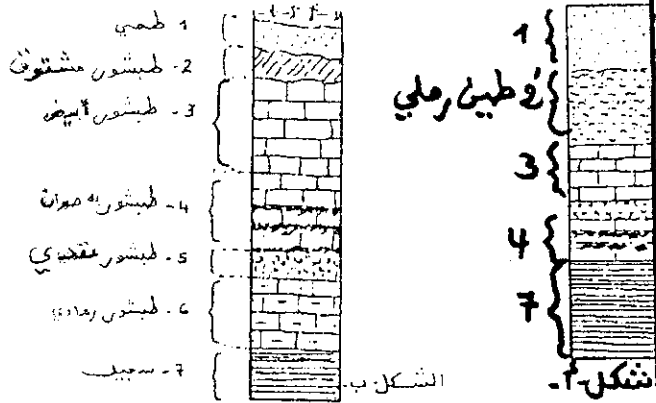 1 طمي
2- طبشور مشقوق
3- طبشور أبيض
4- طبشور به صوان
5- طبشور عقدي
6- طبشور رمادي
7- سجيل
الشكل ب-
1
2' طين رملي
3
4
7
شكل-أ-